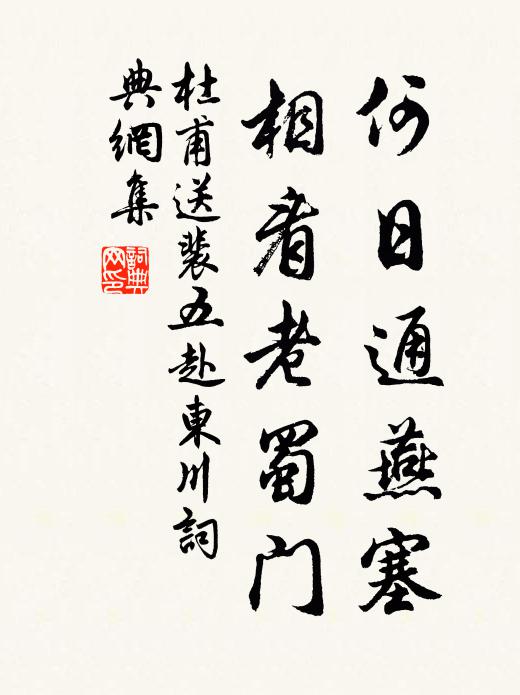 何日通燕塞
相看老蜀门
杜甫送裴五赴東川詞
典網集
詞典
网印